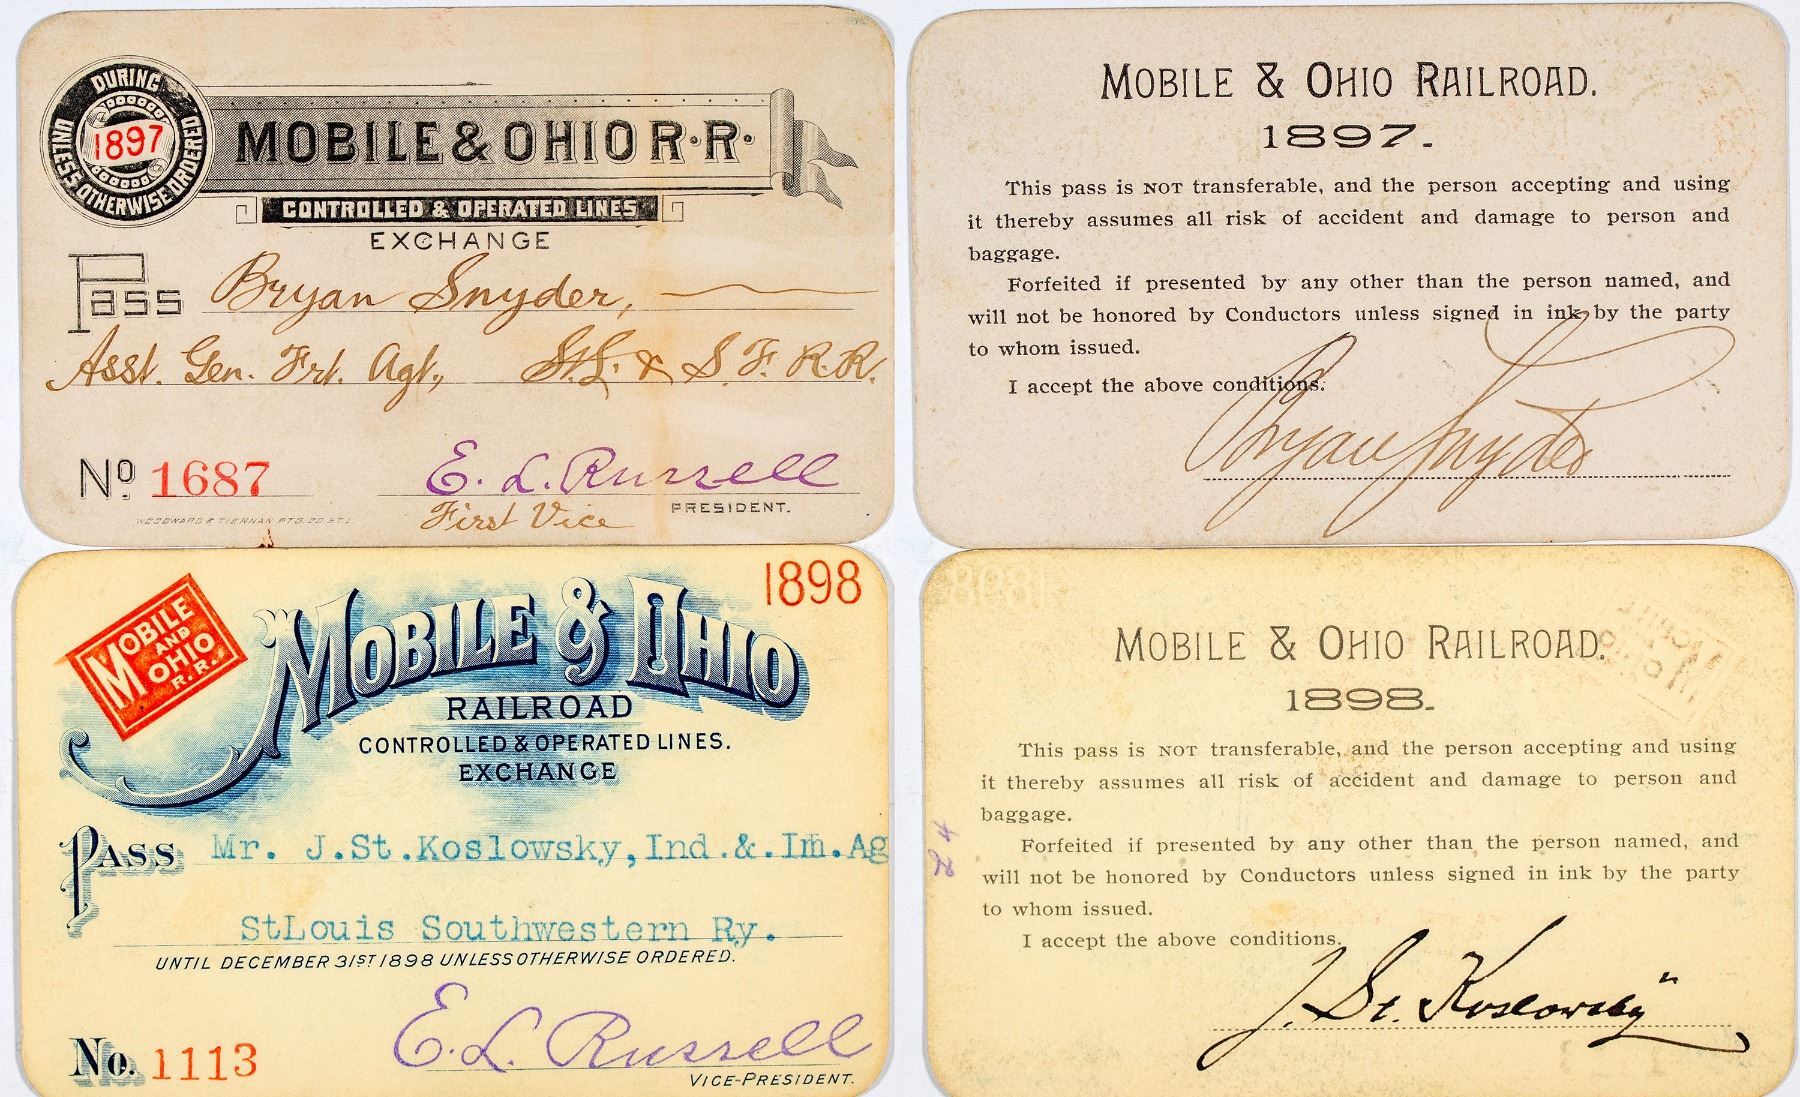 DURING
1897
UNLESS OTHERWISE ORDERED
MOBILE & OHIO R.R.
CONTROLLED & OPERATED LINES
EXCHANGE
Pass Bryan Snyder,
Asst. Gen. Frt. Agt., St.L. & S.F. R.R.
No 1687
E. L. Russell
First Vice PRESIDENT.
WOODWARD & TIERNAN PTG. CO. ST.L.
MOBILE & OHIO RAILROAD.
1897.
This pass is NOT transferable, and the person accepting and using
it thereby assumes all risk of accident and damage to person and
baggage.
Forfeited if presented by any other than the person named, and
will not be honored by Conductors unless signed in ink by the party
to whom issued.
I accept the above conditions.
Bryan Snyder
1898
MOBILE
AND
OHIO
R.R.
MOBILE & OHIO
RAILROAD
CONTROLLED & OPERATED LINES.
EXCHANGE
PASS Mr. J.St.Koslowsky,Ind.&.Im.Ag
StLouis Southwestern Ry.
UNTIL DECEMBER 31ST 1898 UNLESS OTHERWISE ORDERED.
E. L. Russell
No. 1113
VICE-PRESIDENT.
MOBILE & OHIO RAILROAD.
1898.
This pass is NOT transferable, and the person accepting and using
it thereby assumes all risk of accident and damage to person and
baggage.
Forfeited if presented by any other than the person named, and
will not be honored by Conductors unless signed in ink by the party
to whom issued.
I accept the above conditions.
J. St. Koslowsky
24